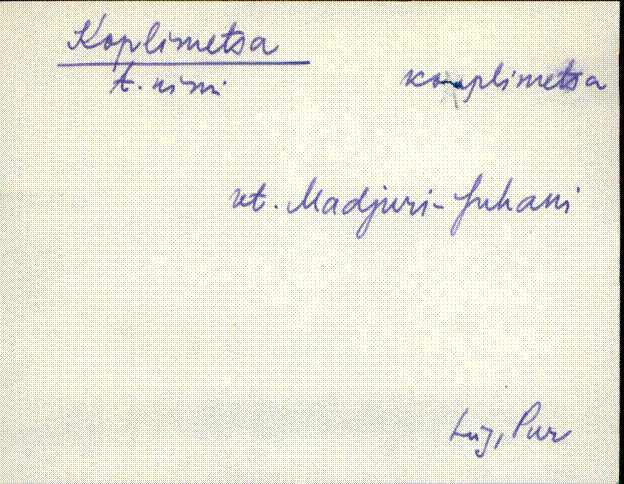 Koplimetsa
t. nimi
koplimetsa
vt. Madjuri-Juhani
Lüg, Pur